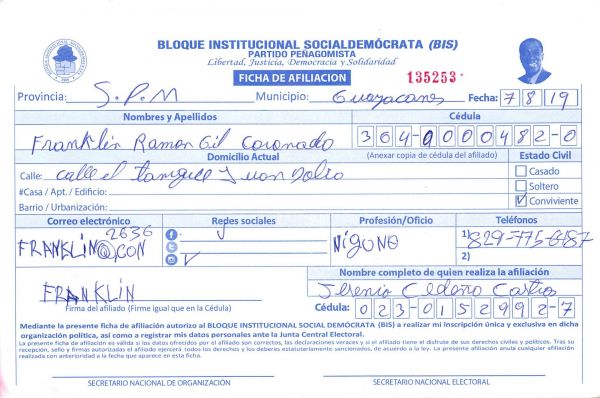 BLOQUE INSTITUCIONAL SOCIALDEMÓCRATA (BIS)
PARTIDO PEÑAGOMISTA
Libertad, Justicia, Democracia y Solidaridad
FICHA DE AFILIACION 135253
Provincia: S.P.M Municipio: Guayacanes Fecha: 7/8/19
Nombres y Apellidos Cédula
Franklin Ramon Gil Coronado 364-0000482-0
Domicilio Actual (Anexar copia de cédula del afiliado) Estado Civil
Calle: calle el tanque Juan Dolio Casado
#Casa / Apt. / Edificio: Soltero
Barrio / Urbanización: Conviviente
Correo electrónico Redes sociales Profesión/Oficio Teléfonos
2636
FRANKLIN@.CON NiGUNO 1) 829-775-6187
2)
Nombre completo de quien realiza la afiliación
FRANKLIN Cedeño
Firma del afiliado (Firme igual que en la Cédula) Cédula: 023-0152992-7
Mediante la presente ficha de afiliación autorizo al BLOQUE INSTITUCIONAL SOCIAL DEMÓCRATA (BIS) a realizar mi inscripción única y exclusiva en dicha
organización política, así como a registrar mis datos personales ante la Junta Central Electoral.
La presente ficha de afiliación es válida si los datos ofrecidos por el afiliado son correctos, las declaraciones veraces y si el afiliado tiene el disfrute de sus derechos civiles y políticos. Tras su
recepción, sello y firmas autorizadas el afiliado ejercerá todos los derechos y los deberes estatutariamente sancionados, de acuerdo a la ley. La presente afiliación anula cualquier afiliación
realizada con anterioridad a la fecha que aparece en esta ficha.
SECRETARIO NACIONAL DE ORGANIZACIÓN SECRETARIO NACIONAL ELECTORAL